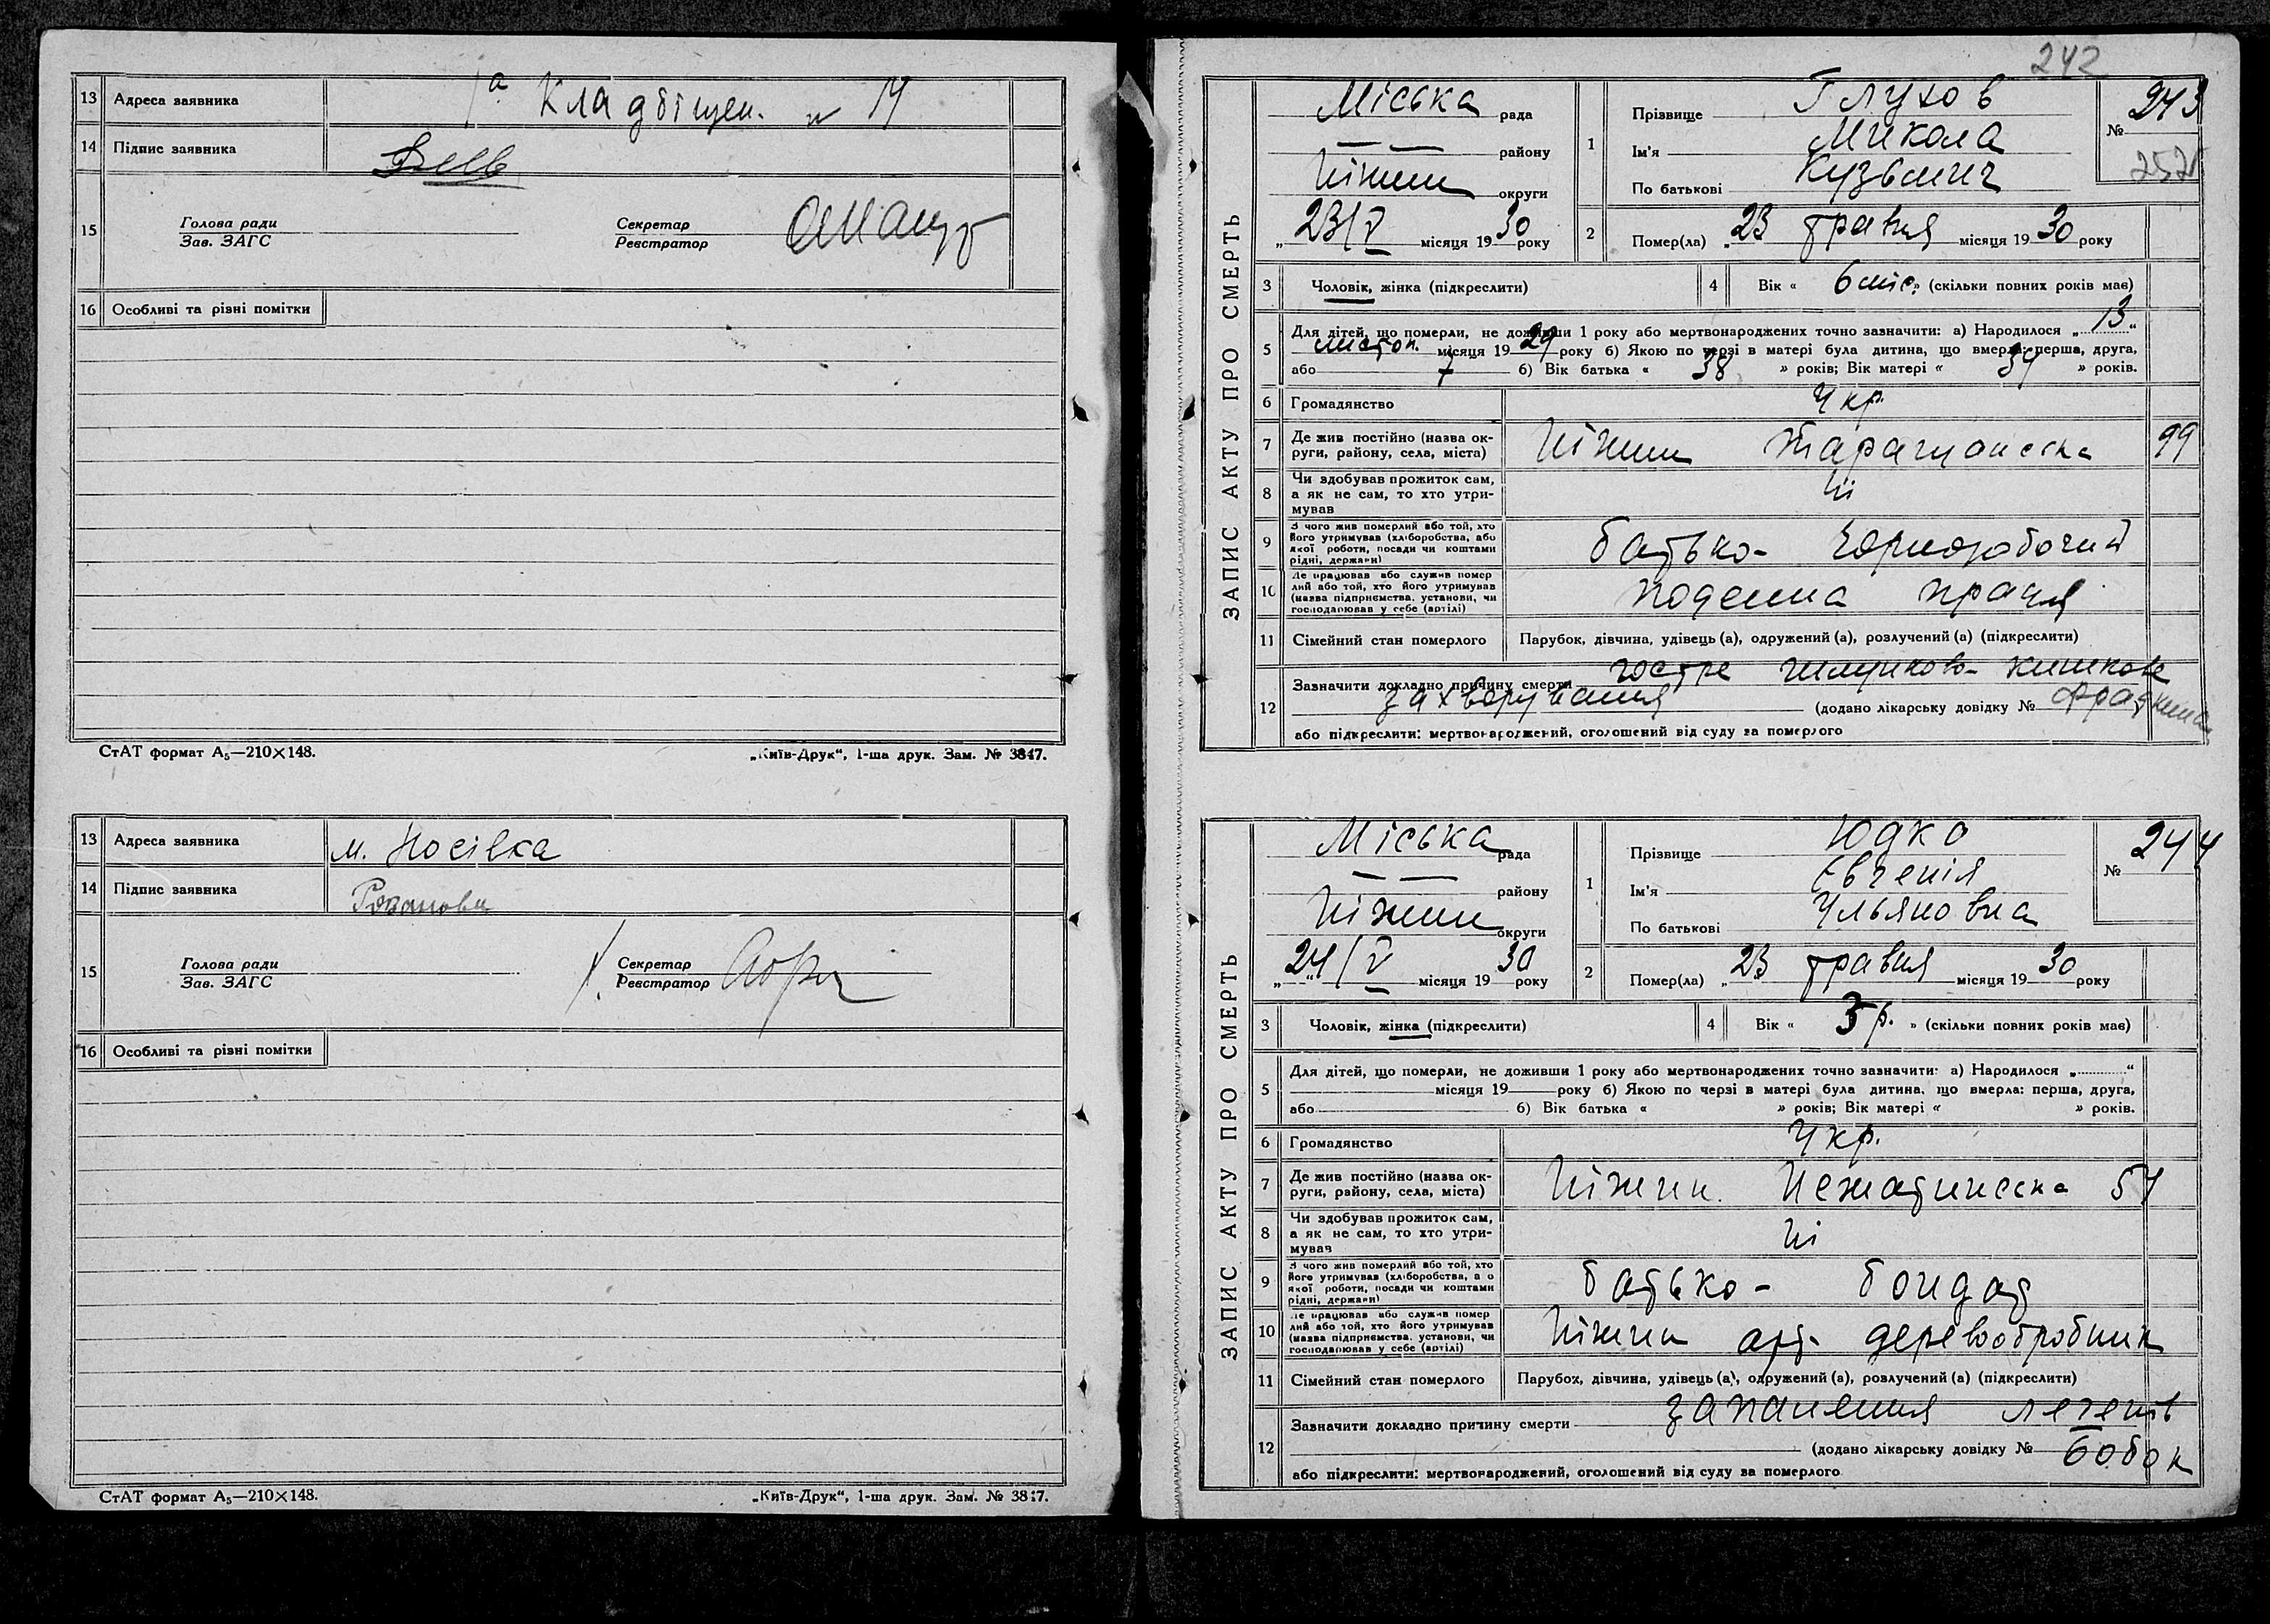 13 Адреса заявника 1а Кладбіщен. № 14
14 Підпис заявника
15 Голова ради Секретар
Зав. ЗАГС Реєстратор
16 Особливі та різні помітки
СтАТ формат А5—210×148. „Київ-Друк“, 1-ша друк. Зам. № 3847.
13 Адреса заявника м. Носівка
14 Підпис заявника
15 Голова ради Секретар
Зав. ЗАГС Реєстратор
16 Особливі та різні помітки
СтАТ формат А5—210×148. „Київ-Друк“, 1-ша друк. Зам. № 3847.
242
ЗАПИС АКТУ ПРО СМЕРТЬ
Міська рада
— — району
Ніжин округи
„ 23/V місяця 1930 року
1 Прізвище Глухов
Ім'я Микола
По батькові Кузьмич
№ 243
252
2 Помер(ла) „ 23 травня місяця 1930 року
3 Чоловік, жінка (підкреслити) 4 Вік « 6 міс. » (скільки повних років має)
5 Для дітей, що померли, не доживши 1 року або мертвонароджених точно зазначити: а) Народилося „ 13 “
листоп. місяця 1929 року б) Якою по черзі в матері була дитина, що вмерла: перша, друга,
або 7 б) Вік батька « 38 » років; Вік матері « 34 » років.
6 Громадянство Укр.
7 Де жив постійно (назва округи, району, села, міста) Ніжин Таращанська 99
8 Чи здобував прожиток сам,
а як не сам, то хто утри-
мував Ні
9 З чого жив померлий або той, хто
його утримував (хліборобства, або
якої роботи, посади чи коштами
рідні, держави) батько- чорноробочий
10 Де працював або служив помер
лий або той, хто його утримував
(назва підприємства, установи, чи
господарював у себе (артілі) поденна праця
11 Сімейний стан померлого Парубок, дівчина, удівець (а), одружений (а), розлучений (а) (підкреслити)
12 Зазначити докладно причину смерти гостре шлунково-кишкове
захворування (додано лікарську довідку № Фрадкина
або підкреслити: мертвонароджений, оголошений від суду за померлого
ЗАПИС АКТУ ПРО СМЕРТЬ
Міська рада
— — району
Ніжин округи
„ 24/V місяця 1930 року
1 Прізвище Юдко
Ім'я Євгенія
По батькові Ульяновна
№ 244
2 Помер(ла) „ 23 травня місяця 1930 року
3 Чоловік, жінка (підкреслити) 4 Вік « 3 р. » (скільки повних років має)
5 Для дітей, що померли, не доживши 1 року або мертвонароджених точно зазначити: а) Народилося „ “
місяця 19 року б) Якою по черзі в матері була дитина, що вмерла: перша, друга,
або б) Вік батька « » років; Вік матері « » років.
6 Громадянство Укр.
7 Де жив постійно (назва ок-
руги, району, села, міста) Ніжин. 54
8 Чи здобував прожиток сам,
а як не сам, то хто утри-
мував Ні
9 З чого жив померлий або той, хто
його утримував (хліборобства, або
якої роботи, посади чи коштами
рідні, держави) батько- бондар
10 Де працював або служив помер
лий або той, хто його утримував
(назва підприємства, установи, чи
господарював у себе (артілі) Ніжин арт. деревообробник
11 Сімейний стан померлого Парубок, дівчина, удівець (а), одружений (а), розлучений (а) (підкреслити)
12 Зазначити докладно причину смерти запалення легенів
(додано лікарську довідку № Бобок
або підкреслити: мертвонароджений, оголошений від суду за померлого